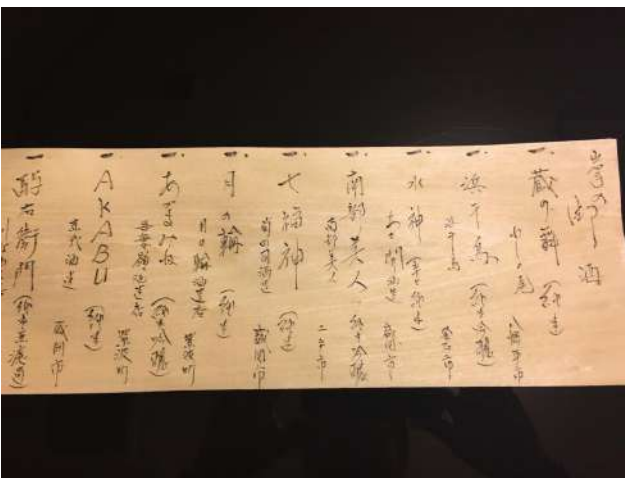 岩手の地酒
一、蔵の舞（純吟）
わしの尾 八幡平市
一、浜千鳥（純米吟醸）
浜千鳥 釜石市
一、水神（辛口純米）
あさ開酒造 盛岡市
一、南部美人（純米吟醸）
南部美人 二戸市
一、七福神（純米）
菊の司酒造 盛岡市
一、月の輪（純米）
月の輪酒造店 紫波町
一、（純米吟醸）
吾妻嶺酒造店 紫波町
一、AKABU（純米）
赤武酒造 盛岡市
一、酔右衛門（純米無濾過）